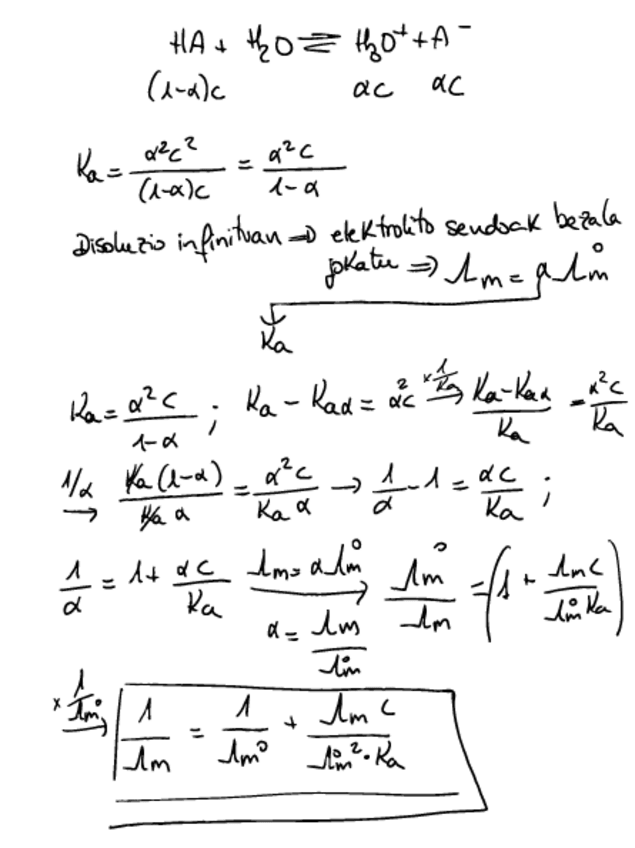 HA + H₂O ⇌ H₃O⁺ + A⁻
(1-α)c αc αc
Ka = α²c² / (1-α)c = α²c / 1-α
Disoluzio infinituan ⇒ elektrolito sendoak bezala
jokatu ⇒ Λm = α Λm°
Ka
Ka = α²c / 1-α ; Ka - Kaα = α²c ×1/Ka → Ka - Kaα / Ka = α²c / Ka
1/α → Ka(1-α) / Ka α = α²c / Ka α → 1/α - 1 = αc / Ka ;
1/α = 1 + αc / Ka Λm = αΛm° → Λm° / Λm = (1 + Λm c / Λm° Ka)
α = Λm / Λm°
× 1/Λm° → 1/Λm = 1/Λm° + Λm c / Λm°² · Ka